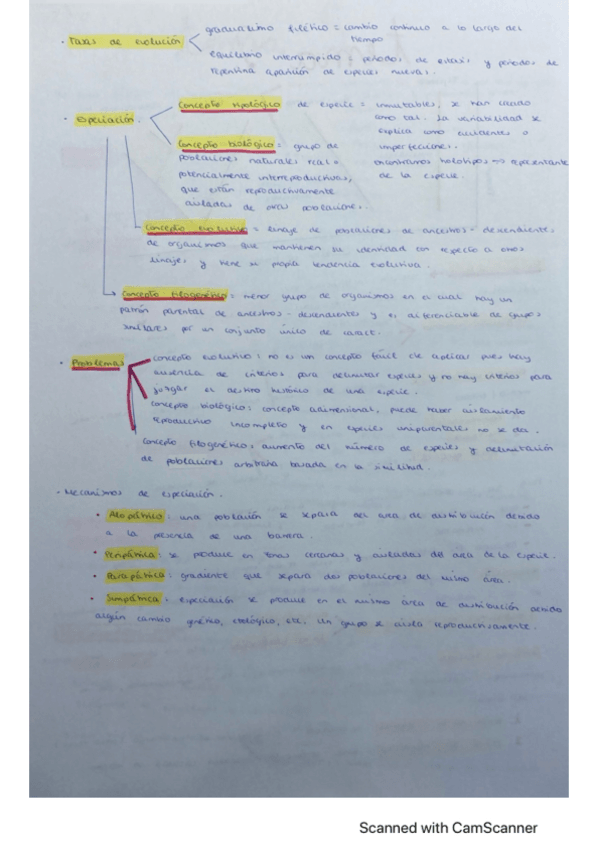 gradualismo filético = cambio continuo a lo largo del tiempo
· Tasas de evolución
equilibrio interrumpido = periodos de estasis y periodos de
repentina aparición de especies nuevas.
· Especiación.
Concepto tipológico de especie = inmutables, se han creado
como tal. La variabilidad se
explica como accidentes o
imperfecciones.
encontramos holotipos => representante
de la especie.
Concepto biológico = grupo de
poblaciones naturales real o
potencialmente interreproductivas,
que están reproductivamente
aisladas de otras poblaciones.
Concepto evolutivo = linaje de poblaciones de ancestros - descendientes
de organismos que mantienen su identidad con respecto a otros
linajes y tiene su propia tendencia evolutiva.
Concepto filogenético = menor grupo de organismos en el cual hay un
patrón parental de ancestros - descendientes y es diferenciable de grupos
similares por un conjunto único de caract.
· Problemas
concepto evolutivo: no es un concepto fácil de aplicar pues hay
ausencia de criterios para delimitar especies y no hay criterios para
juzgar el destino histórico de una especie.
concepto biológico: concepto adimensional, puede haber aislamiento
reproductivo incompleto y en especies uniparentales no se da.
Concepto filogenético: aumento del número de especies y delimitación
de poblaciones arbitraria basada en la similitud.
· Mecanismos de especiación.
• Alopátrica: una población se separa del área de distribución debido
a la presencia de una barrera.
• Peripátrica: se produce en zonas cercanas y aisladas del área de la especie.
• Parapátrica: gradiente que separa dos poblaciones del mismo área.
• Simpátrica: especiación se produce en el mismo área de distribución debido
algún cambio genético, etológico, etc. Un grupo se aísla reproductivamente.
Scanned with CamScanner